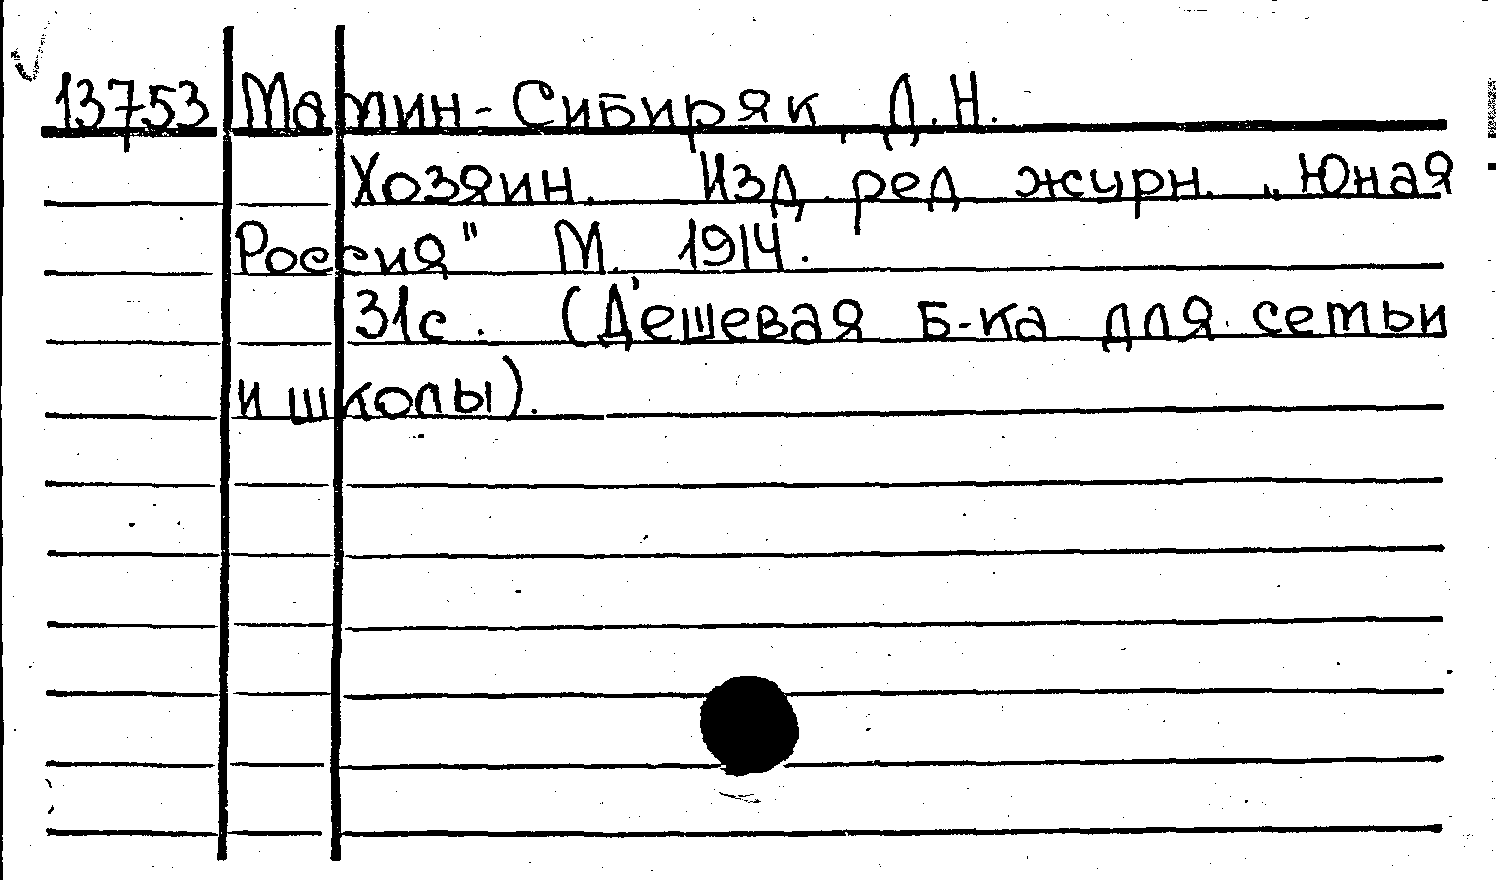 13753 Мамин-Сибиряк, Д.Н.
Хозяин. Изд. ред. журн. „Юная
Россия" М., 1914.
31с. (Дешевая Б-ка для сетьи
и школы).